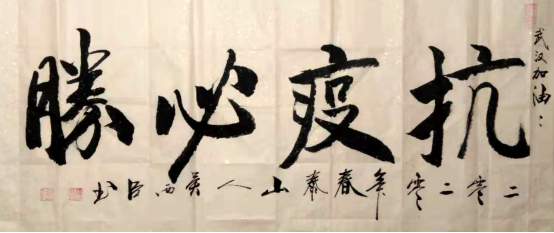 武汉加油
抗疫必勝
二零二零年春泰山人吴西臣书